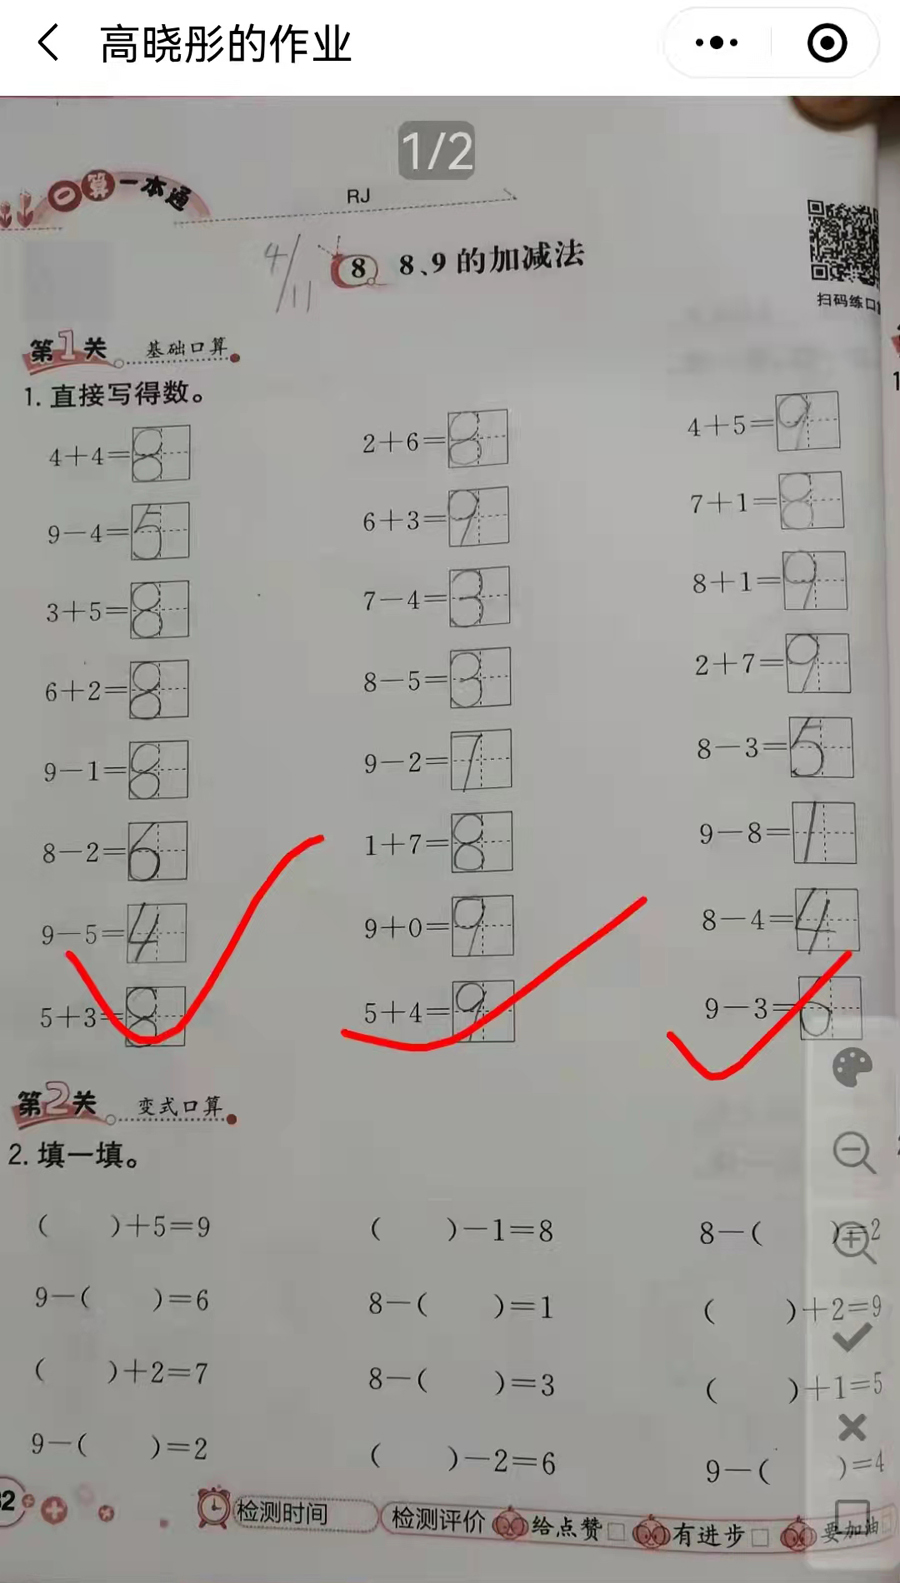 高晓彤的作业
1/2
口算一本通
RJ
4/11
8 8、9的加减法
扫码练口
第1关 基础口算
1. 直接写得数。
4+4=8 2+6=8 4+5=9
9-4=5 6+3=9 7+1=8
3+5=8 7-4=3 8+1=9
6+2=8 8-5=3 2+7=9
9-1=8 9-2=7 8-3=5
8-2=6 1+7=8 9-8=1
9-5=4 9+0=9 8-4=4
5+3=8 5+4=9 9-3=6
第2关 变式口算
2. 填一填。
( )+5=9 ( )-1=8 8-( )=2
9-( )=6 8-( )=1 ( )+2=9
( )+2=7 8-( )=3 ( )+1=5
9-( )=2 ( )-2=6 9-( )=4
检测时间 检测评价 给点赞□ 有进步□ 要加油□